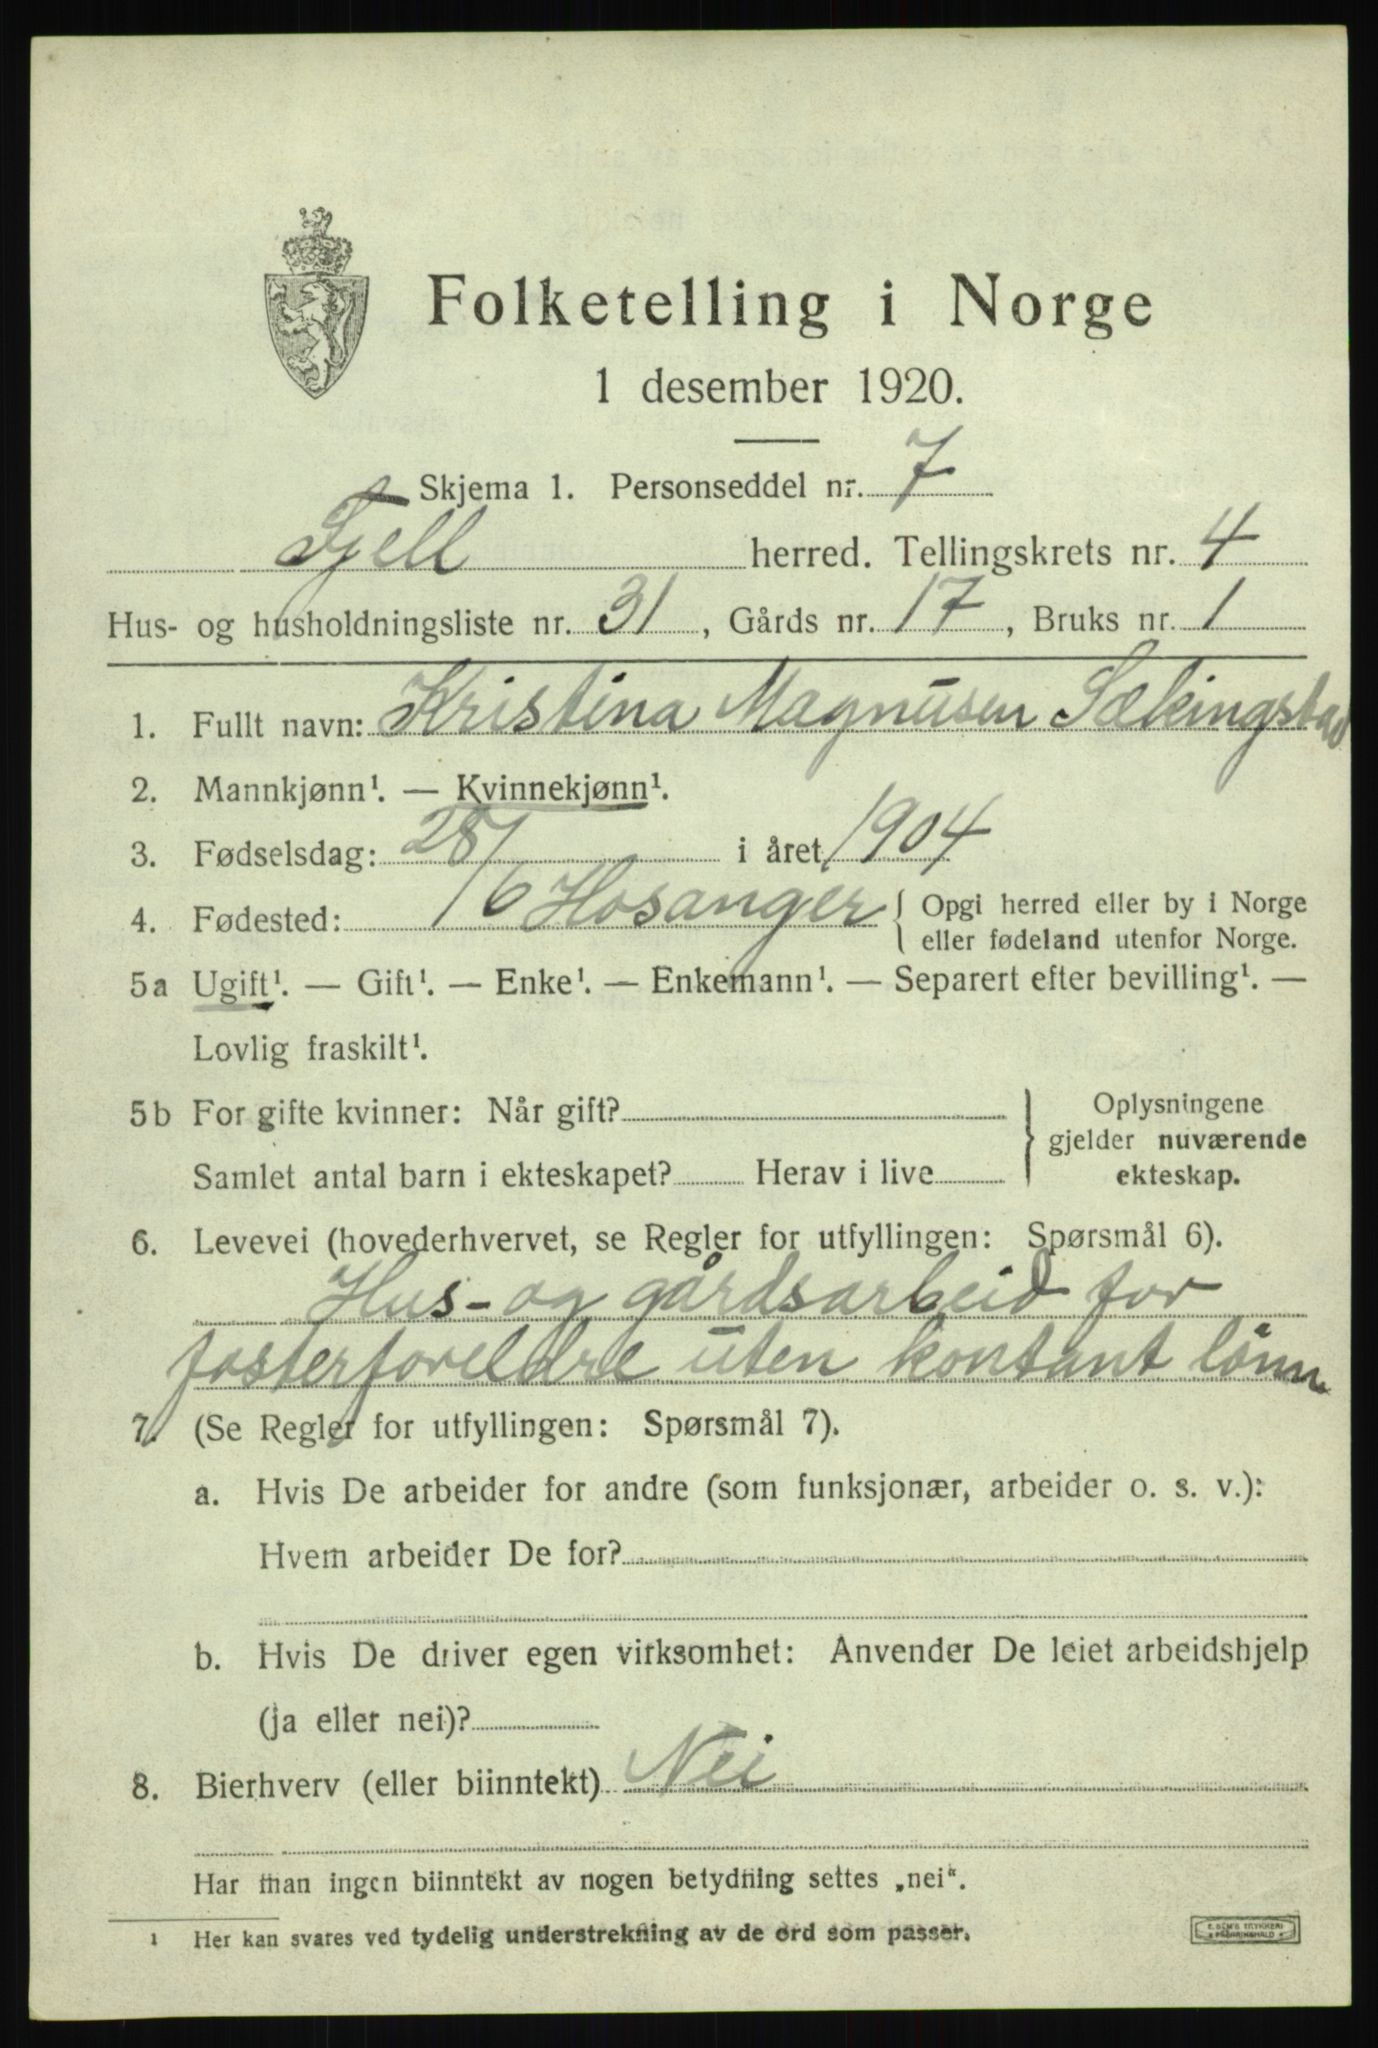 Folketelling i Norge
1 desember 1920.
Skjema 1. Personseddel nr. 7
Fjell herred. Tellingskrets nr. 4
Hus- og husholdningsliste nr. 31, Gårds nr. 17, Bruks nr. 1
1. Fullt navn: Kristina Magnusen Sækingstad
2. Mannkjønn¹. — Kvinnekjønn¹.
3. Fødselsdag: 28/6 i året 1904
4. Fødested: Hosanger { Opgi herred eller by i Norge
eller fødeland utenfor Norge.
5 a Ugift¹. — Gift¹. — Enke¹. — Enkemann¹. — Separert efter bevilling¹. —
Lovlig fraskilt¹.
5 b For gifte kvinner: Når gift? } Oplysningene
gjelder nuværende
Samlet antal barn i ekteskapet? Herav i live ekteskap.
6. Levevei (hovederhvervet, se Regler for utfyllingen: Spørsmål 6).
Hus- og gårdsarbeid for
fosterforeldre uten kontant lönn
7. (Se Regler for utfyllingen: Spørsmål 7).
a. Hvis De arbeider for andre (som funksjonær, arbeider o. s. v.):
Hvem arbeider De for?
b. Hvis De driver egen virksomhet: Anvender De leiet arbeidshjelp
(ja eller nei)?
8. Bierhverv (eller biinntekt) Nei
Har man ingen biinntekt av nogen betydning settes „nei“.
¹ Her kan svares ved tydelig understrekning av de ord som passer.
E. SEM'S TRYKKERI
FREDRIKSHALD